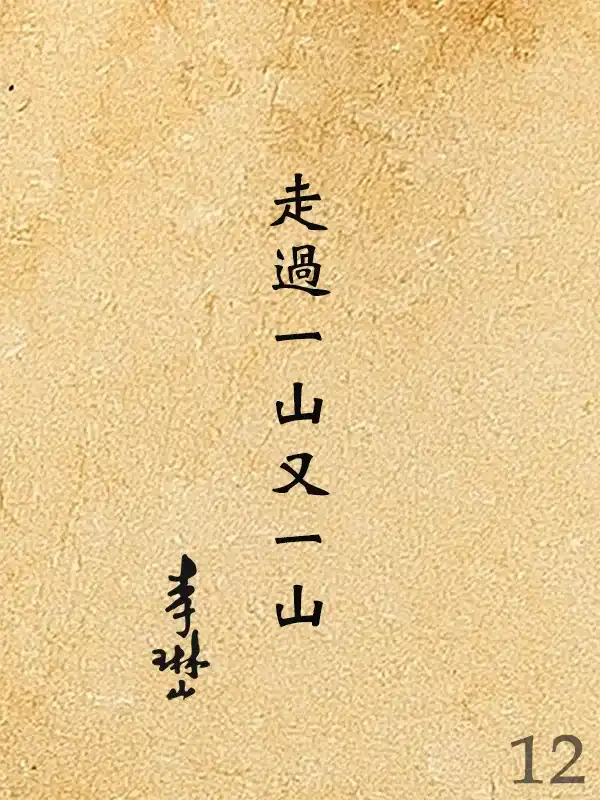 走過一山又一山
李琳山
12